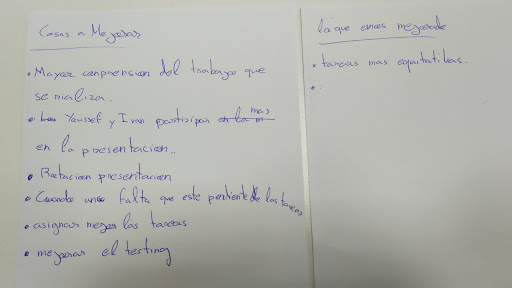 Cosas a Mejorar
• Mayor comprension del trabajo que
se realiza.
• Youssef y Ivan participar mas
en la presentacion..
• Rotacion presentacion
• Cuando uno falta que este pendiente de las tareas
• asignar mejor las tareas
• mejorar el testing
lo que emos mejorado
• tareas mas equitativas.
•